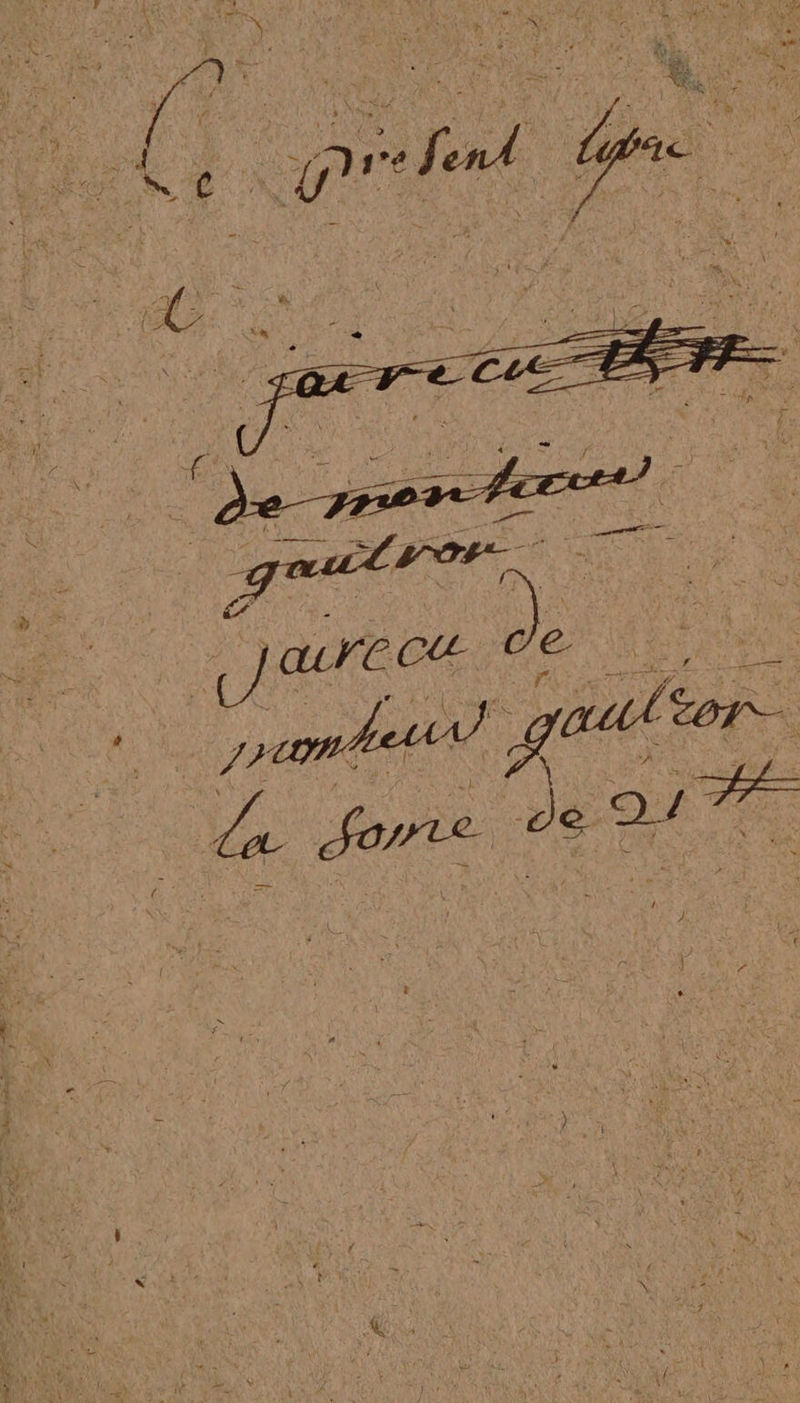 Le present
jai recu
de monsieur
gautron
Jai recu de
monsieur gaultron
la some de 21 ₶